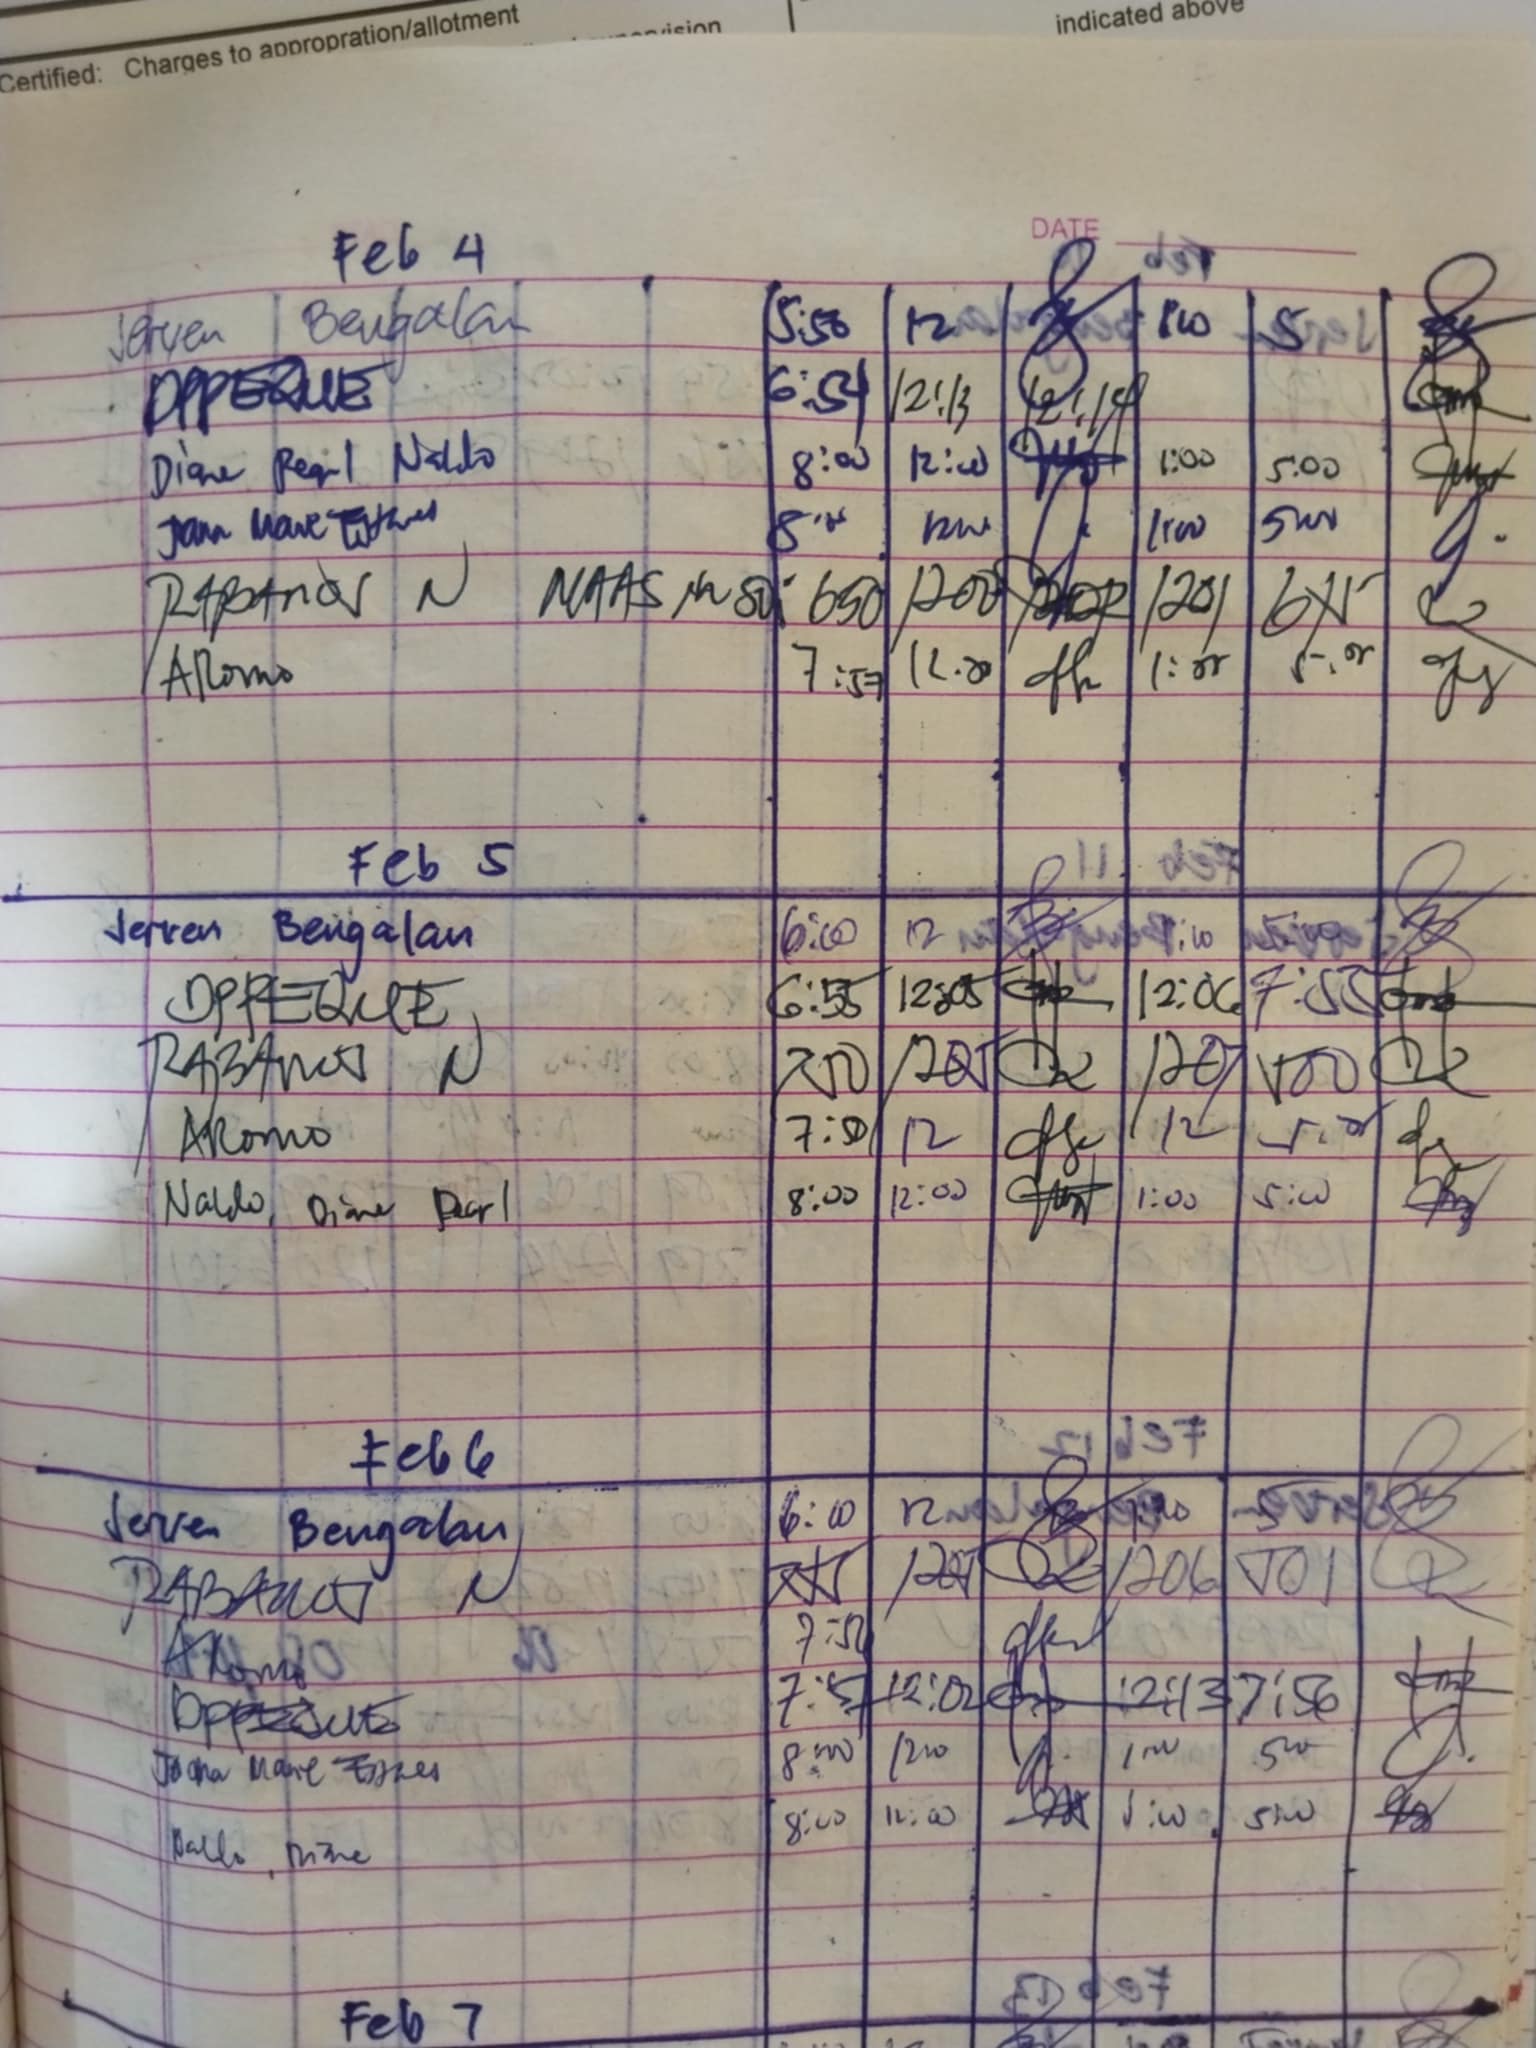 Certified: Charges to appropration/allotment
indicated above
DATE
Feb 4
Jerven Bengalan 5:50 12 1:00 5
OPPEQUE 6:54 12:13 12:14
Diane Pearl Naldo 8:00 12:00 1:00 5:00
8:00 1200 1:00 500
RABANOS N NAAS 650 1200 1201
ARomo 7:57 12:00 1:00 5:00
Feb 5
Jerven Bengalan 6:00 12 1:00 5:00
OPPEQUE 6:55 12:05 12:06 7:55
RABANOS N 750 1205 1207 500
ARomo 7:50 12 12 5:00
Naldo, Diane Pearl 8:00 12:00 1:00 5:00
Feb 6
Jerven Bengalan 6:00 12 1:00 5
RABANOS N 1205 1206 501
ARomo 7:50
OPPEQUE 7:57 12:02 12:13 7:56
8:00 1200 100 500
Naldo, Diane 8:00 12:00 1:00 5:00
Feb 7